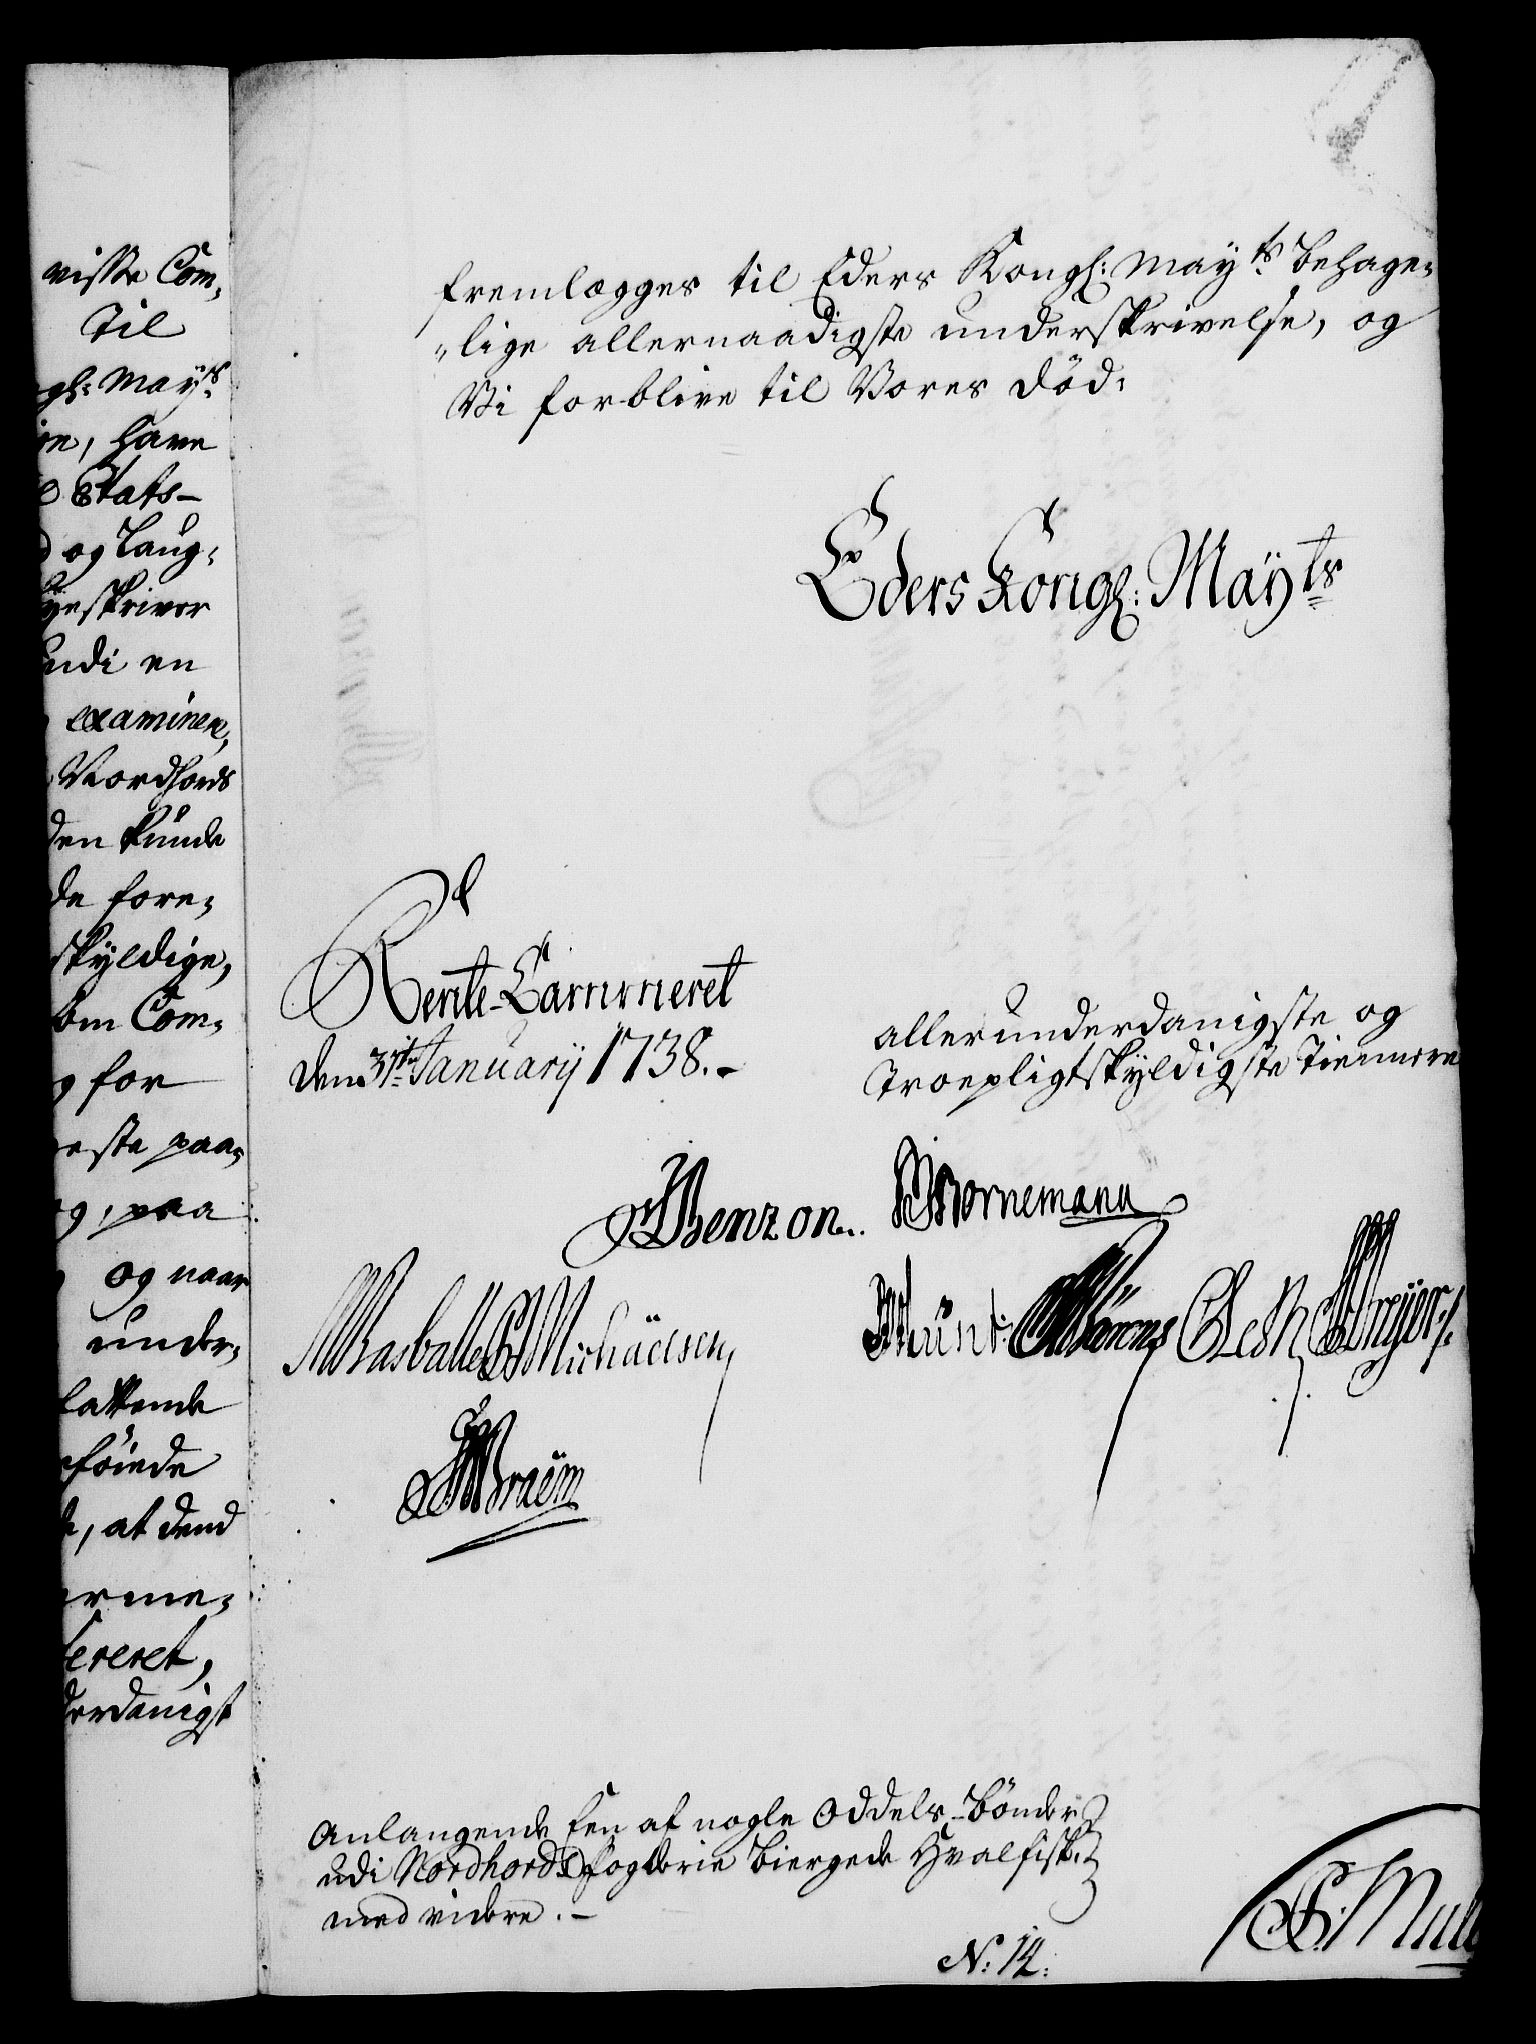 visse Com-
Til
gl: May:ts
have
Etats-
og Laug-
skriver
udi en
examinere,
Nordhords
den kunde
de fore-
skyldige,
om Com-
for
este paa-
paa
og naar
under-
föiede
at dend
erme-
fereret,
derdanigst
fremlægges til Eders Kongl: May:ts behage-
-lige allernaadigste underskrivelse, og
Vi forblive til Vores Död.
Eders Kongl: Maÿts
Rente-Cammeret
den 31te January 1738.-
allerunderdanigste og
Troepligtskyldigste Tiennere
Benzon.
Bornemann
Rasballe Michäelsen
Munt:
Braëm
Anlangende Een af nogle Oddels-Bönder
udi Nordhords Fogderie biergede Hvalfisk,
med videre.-
N: 14: